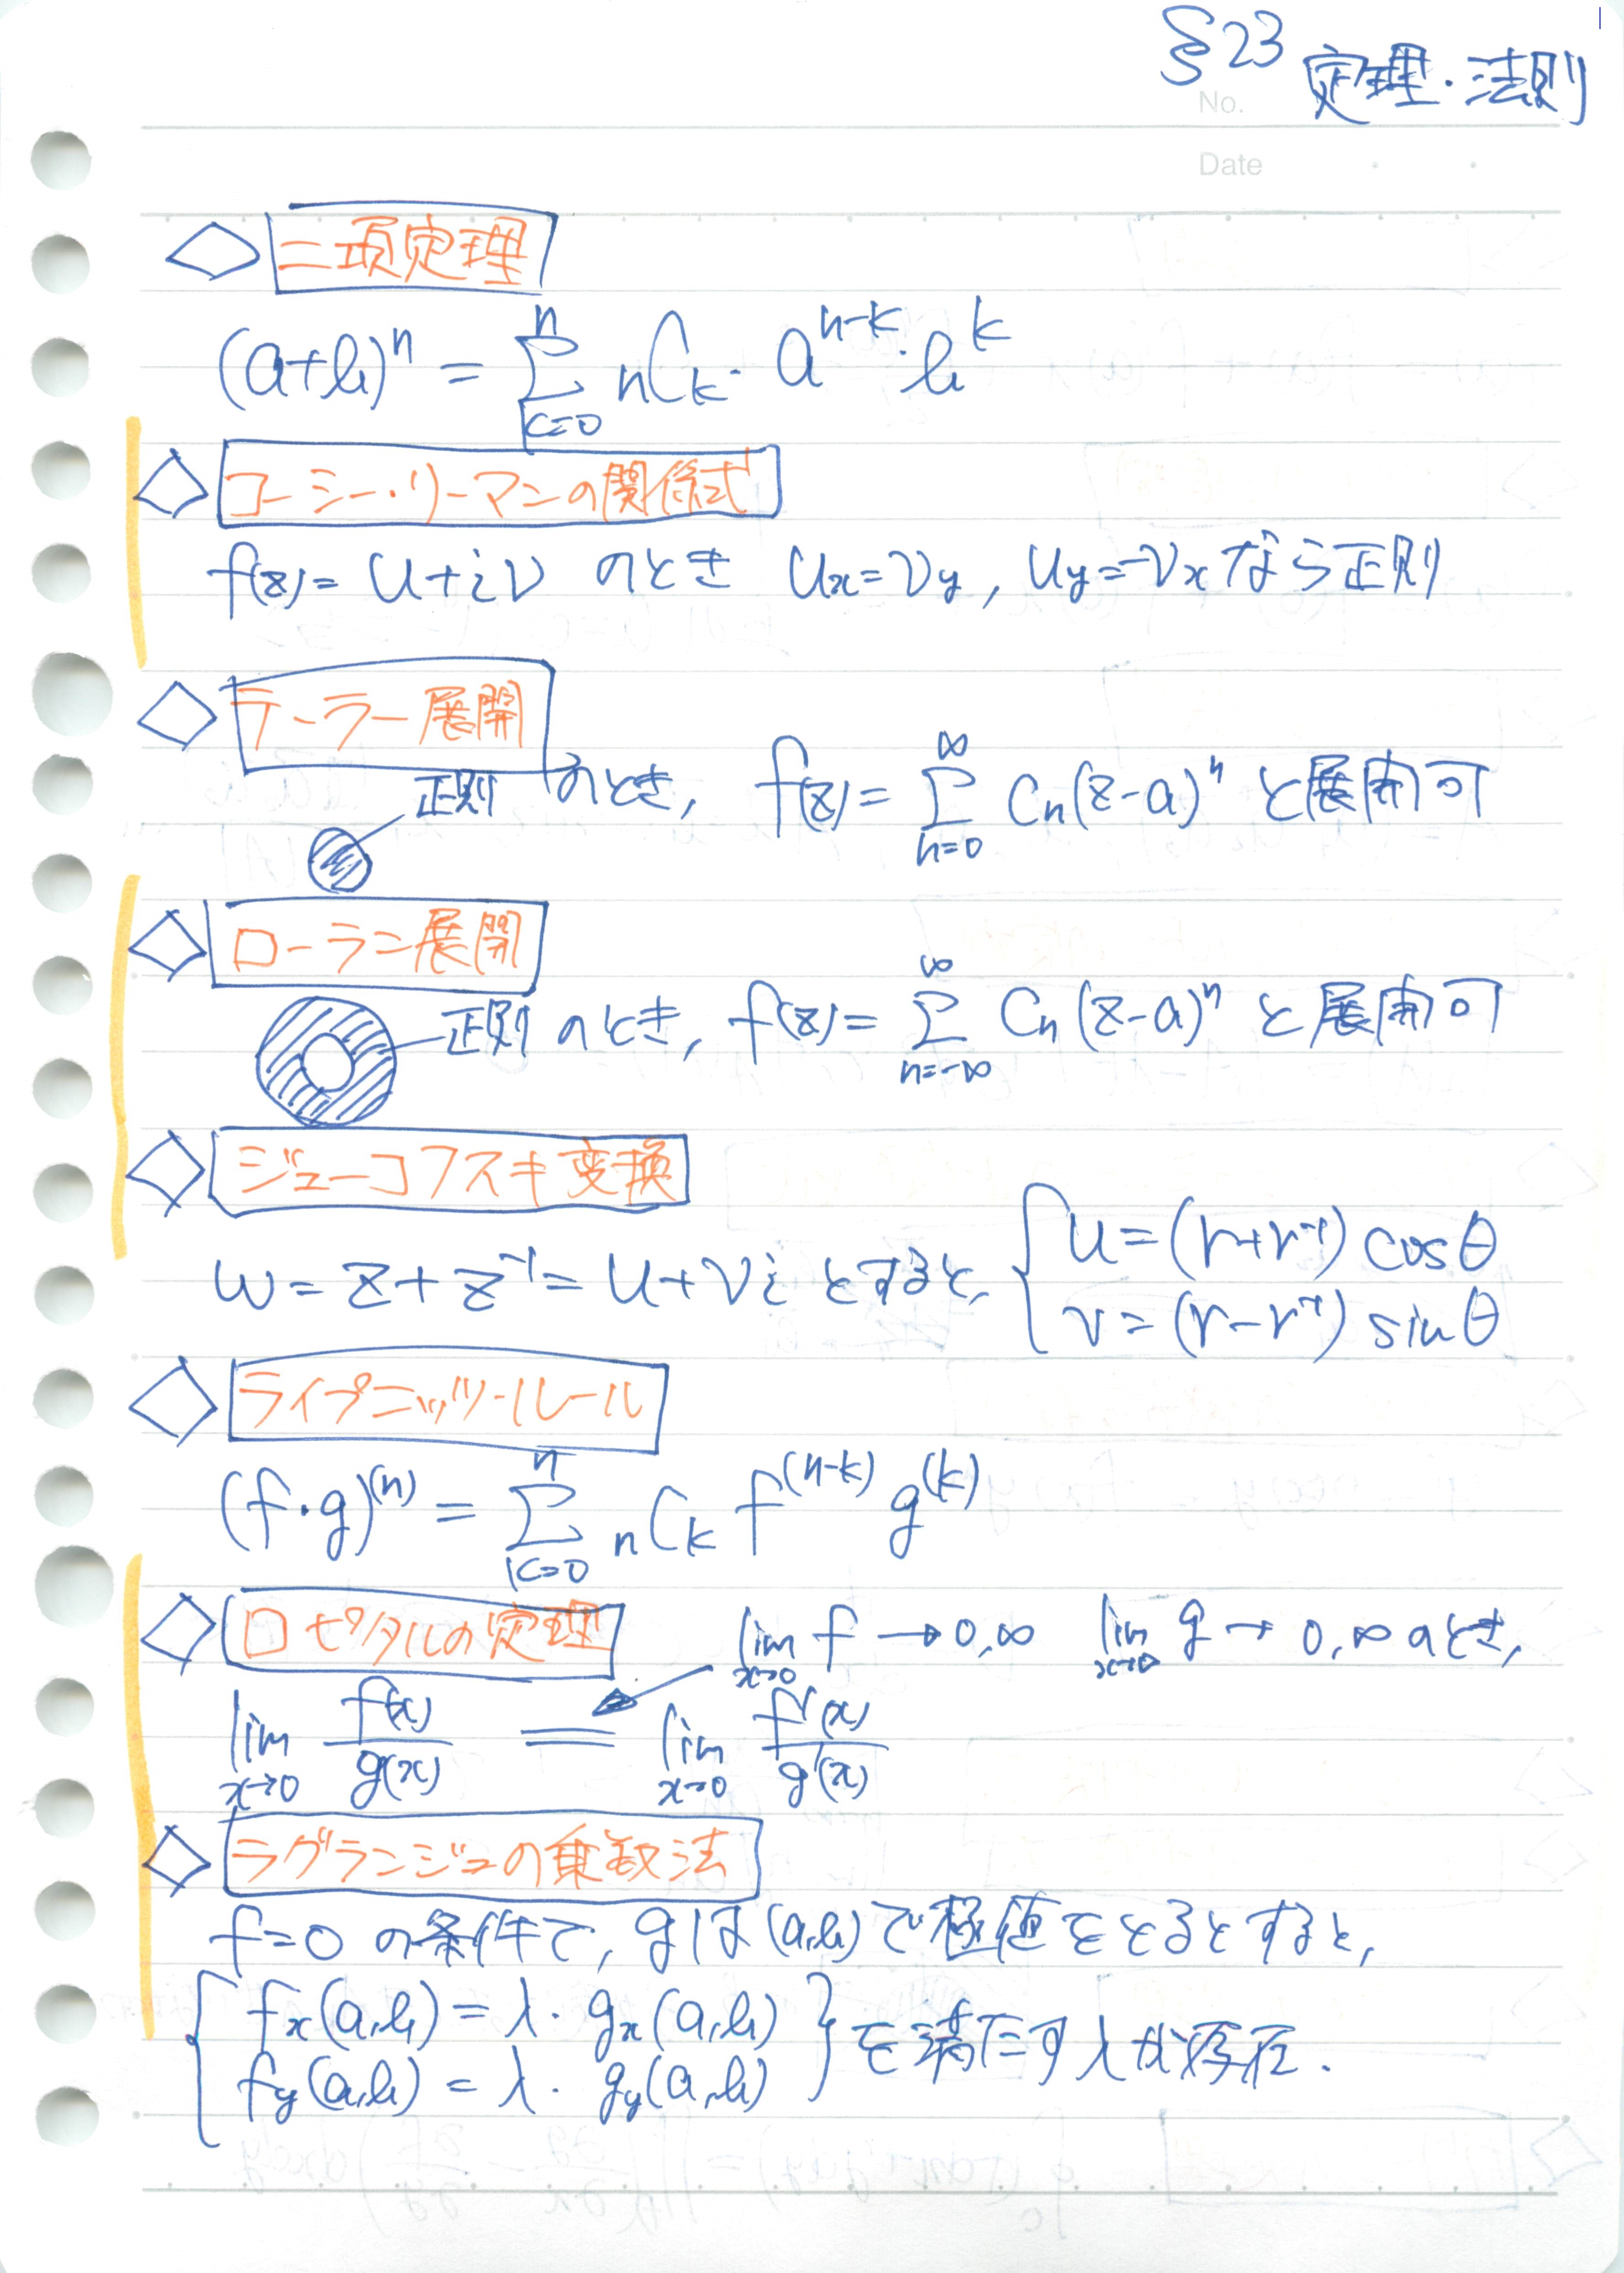 §23 定理・法則
No.
Date
二項定理
(a+b)^n = Σ_{k=0}^{n} nCk・a^{n-k}・b^k
コーシー・リーマンの関係式
f(z) = u+iv のとき ux=vy, uy=-vxなら正則
テーラー展開
正則 のとき, f(z) = Σ_{n=0}^{∞} Cn(z-a)^n と展開可
ローラン展開
正則 のとき, f(z) = Σ_{n=-∞}^{∞} Cn(z-a)^n と展開可
ジューコフスキ変換
w = z + z^{-1} = u+vi とすると, { u = (r+r^{-1}) cosθ
v = (r-r^{-1}) sinθ
ライプニッツ・ルール
(f・g)^{(n)} = Σ_{k=0}^{n} nCk f^{(n-k)} g^{(k)}
ロピタルの定理 lim_{x→0} f → 0,∞ lim_{x→0} g → 0,∞ のとき,
lim_{x→0} f(x)/g(x) = lim_{x→0} f'(x)/g'(x)
ラグランジュの乗数法
f=0 の条件で, gは(a,b)で極値をとるとすると,
{ fx(a,b) = λ・gx(a,b) } を満たすλが存在.
fy(a,b) = λ・gy(a,b)